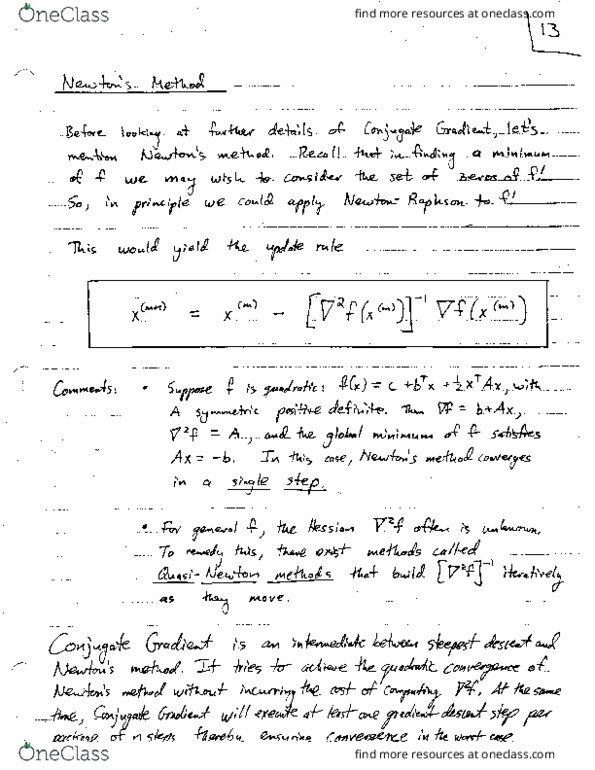 OneClass
find more resources at oneclass.com
13
Newton's Method
Before looking at further details of Conjugate Gradient, let's
mention Newton's method. Recall that in finding a minimum
of f we may wish to consider the set of zeros of f!
So, in principle we could apply Newton-Raphson to f!
This would yield the update rule
x^(m+1) = x^(m) - [∇²f(x^(m))]^-1 ∇f(x^(m))
Comments: • Suppose f is quadratic: f(x) = c + b^T x + ½ x^T A x, with
A symmetric positive definite. Then ∇f = b + Ax,
∇²f = A, and the global minimum of f satisfies
Ax = -b. In this case, Newton's method converges
in a single step.
• For general f, the Hessian ∇²f often is unknown.
To remedy this, there exist methods called
Quasi-Newton methods that build [∇²f]^-1 iteratively
as they move.
Conjugate Gradient is an intermediate between steepest descent and
Newton's method. It tries to achieve the quadratic convergence of
Newton's method without incurring the cost of computing ∇²f. At the same
time, Conjugate Gradient will execute at least one gradient descent step per
of n steps thereby ensuring convergence in the worst case.
OneClass
find more resources at oneclass.com